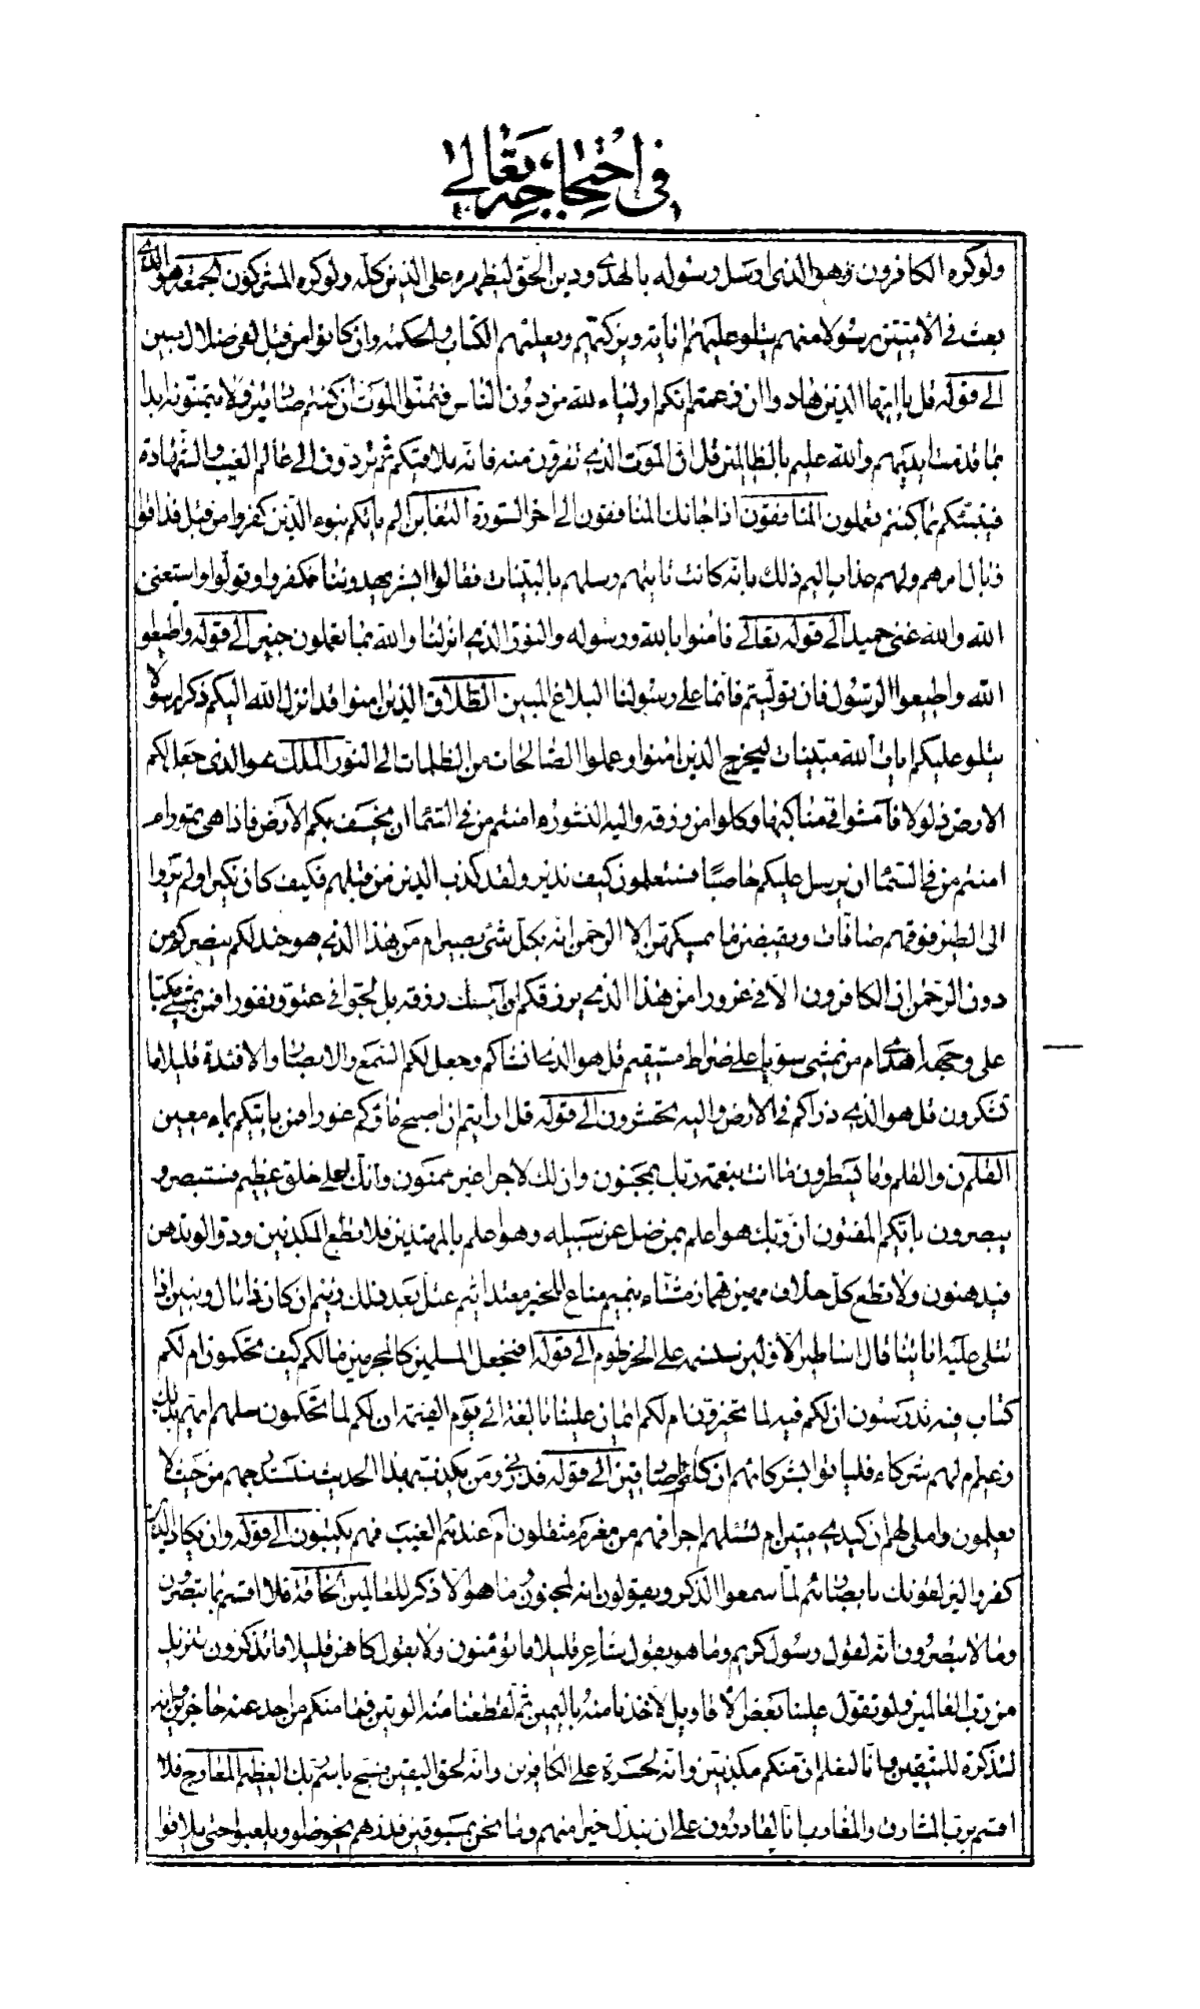 في احتجاجه تعالى
ولو كره الكافرون وهو الذي ارسل رسوله بالهدى ودين الحق ليظهره على الدين كله ولو كره المشركون الجمعة هو الذي
بعث في الاميين رسولا منهم يتلو عليهم اياته ويزكيهم ويعلمهم الكتاب والحكمة وان كانوا من قبل لفي ضلال مبين
الى قوله قل يا ايها الذين هادوا ان زعمتم انكم اولياء لله من دون الناس فتمنوا الموت ان كنتم صادقين ولا يتمنونه ابدا
بما قدمت ايديهم والله عليم بالظالمين قل ان الموت الذي تفرون منه فانه ملاقيكم ثم تردون الى عالم الغيب والشهادة
فينبئكم بما كنتم تعملون المنافقون اذا جائك المنافقون الى اخر السورة التغابن الم ياتكم نبوء الذين كفروا من قبل فذاقوا
وبال امرهم ولهم عذاب اليم ذلك بانه كانت تاتيهم رسلهم بالبينات فقالوا ابشر يهدوننا فكفروا وتولوا واستغنى
الله والله غني حميد الى قوله تعالى فامنوا بالله ورسوله والنور الذي انزلنا والله بما تعملون خبير الى قوله واطيعوا
الله واطيعوا الرسول فان توليتم فانما على رسولنا البلاغ المبين الطلاق الذين امنوا قد انزل الله اليكم ذكرا رسولا
يتلو عليكم ايات الله مبينات ليخرج الذين امنوا وعملوا الصالحات من الظلمات الى النور الملك هو الذي جعل لكم
الارض ذلولا فامشوا في مناكبها وكلوا من رزقه واليه النشور ءامنتم من في السماء ان يخسف بكم الارض فاذا هي تمور ام
امنتم من في السماء ان يرسل عليكم حاصبا فستعلمون كيف نذير ولقد كذب الذين من قبلهم فكيف كان نكير اولم يروا
الى الطير فوقهم صافات ويقبضن ما يمسكهن الا الرحمن انه بكل شئ بصير ام من هذا الذي هو جند لكم ينصركم من
دون الرحمن ان الكافرون الا في غرور امن هذا الذي يرزقكم ان امسك رزقه بل لجوا في عتو ونفور افمن يمشي مكبا
على وجهه اهدى ام من يمشي سويا على صراط مستقيم قل هو الذي انشاكم وجعل لكم السمع والابصار والافئدة قليلا ما
تشكرون قل هو الذي ذراكم في الارض واليه تحشرون الى قوله قل ارايتم ان اصبح ماؤكم غورا فمن ياتيكم بماء معين
القلم ن والقلم وما يسطرون ما انت بنعمة ربك بمجنون وان لك لاجرا غير ممنون وانك لعلى خلق عظيم فستبصر و
يبصرون بايكم المفتون ان ربك هو اعلم بمن ضل عن سبيله وهو اعلم بالمهتدين فلا تطع المكذبين ودوا لو تدهن
فيدهنون ولا تطع كل حلاف مهين هماز مشاء بنميم مناع للخير معتد اثيم عتل بعد ذلك زنيم ان كان ذا مال وبنين اذا
تتلى عليه اياتنا قال اساطير الاولين سنسمه على الخرطوم الى قوله افنجعل المسلمين كالمجرمين مالكم كيف تحكمون ام لكم
كتاب فيه تدرسون ان لكم فيه لما تخيرون ام لكم ايمان علينا بالغة الى يوم القيمة ان لكم لما تحكمون سلهم ايهم بذلك
زعيم ام لهم شركاء فلياتوا بشركائهم ان كانوا صادقين الى قوله فذرني ومن يكذب بهذا الحديث سنستدرجهم من حيث لا
يعلمون واملي لهم ان كيدي متين ام تسئلهم اجرا فهم من مغرم مثقلون ام عندهم الغيب فهم يكتبون الى قوله وان يكاد الذين
كفروا ليزلقونك بابصارهم لما سمعوا الذكر ويقولون انه لمجنون وما هو الا ذكر للعالمين الحاقة فلا اقسم بما تبصرون
وما لا تبصرون انه لقول رسول كريم وما هو بقول شاعر قليلا ما تؤمنون ولا بقول كاهن قليلا ما تذكرون تنزيل
من رب العالمين ولو تقول علينا بعض الاقاويل لاخذنا منه باليمين ثم لقطعنا منه الوتين فما منكم من احد عنه حاجزين وانه
لتذكرة للمتقين وانا لنعلم ان منكم مكذبين وانه لحسرة على الكافرين وانه لحق اليقين فسبح باسم ربك العظيم المعارج فلا
اقسم برب المشارق والمغارب انا لقادرون على ان نبدل خيرا منهم وما نحن بمسبوقين فذرهم يخوضوا ويلعبوا حتى يلاقوا